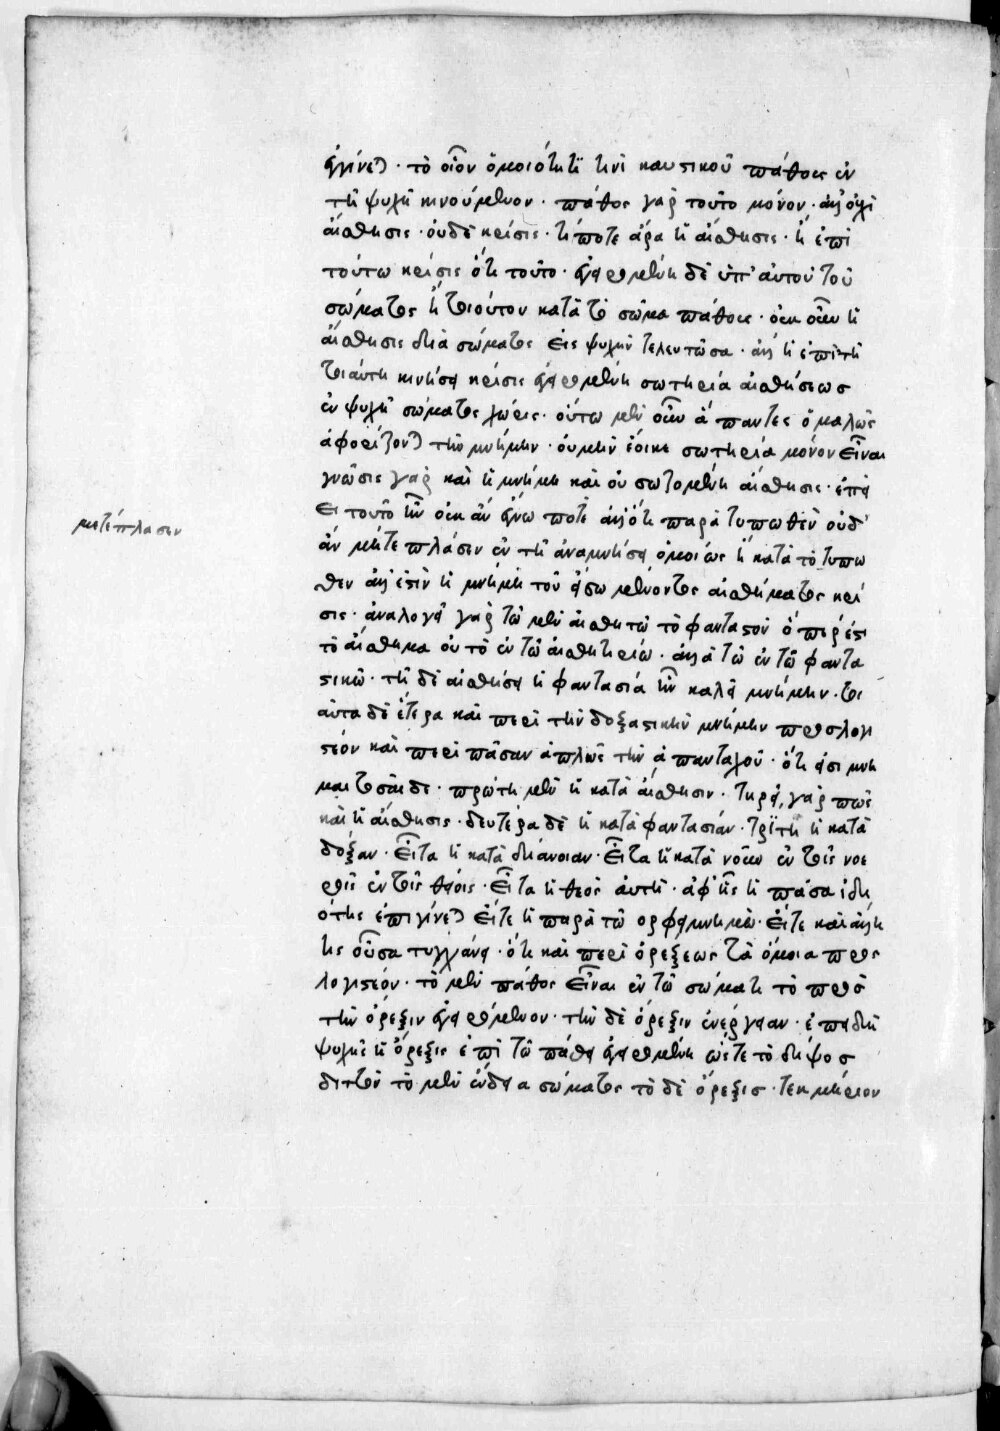 ἐγγίνεται · τὸ οἷον ὁμοιότητί τινι καυστικοῦ πάθους ἐν
τῇ ψυχῇ κινούμενον · πάθος γὰρ τοῦτο μόνον · ἀλλ' οὐχὶ
αἴσθησις · οὐδὲ κρίσις · τί ποτε ἄρα ἡ αἴσθησις · ἡ ἐπὶ
τούτω κρίσις ὅτι τοῦτο · ἐγειρομένη δὲ ὑπ' αὐτοῦ τοῦ
σώματος ἢ τοιούτου κατὰ τὸ σῶμα πάθους · οὐκ οὖν ἡ
αἴσθησις διὰ σώματος εἰς ψυχὴν τελευτῶσα · ἀλλ' ἡ ἐπὶ τῇ
τοιαύτη κινήσει κρίσις ἐγειρομένη σωτηρία αἰσθήσεως
ἐν ψυχῇ σώματος χωρίς · οὕτω μὲν οὖν ἅπαντες ὁμαλῶς
ἀφορίζονται τὴν μνήμην · οὐ μὴν ἔοικε σωτηρία μόνον εἶναι
γνῶσις γὰρ καὶ ἡ μνήμη καὶ οὐ σωζομένη αἴσθησις · ἐπεὶ
εἰ τοῦτο ἦν οὐκ ἂν ἔγνω ποτὲ ἀλλ' ὅτι παρατυπωθὲν οὐδ'
ἂν μήτε πλάσεν ἐν τῇ ἀναμνήσει ὁμοίως ἢ κατὰ τὸ τυπω
θεν ἀλλ' ἔστιν ἡ μνήμη τοῦ εἴσω μένοντος αἰσθήματος κρί
μετέπλασεν
σις · ἀναλογεῖ γὰρ τῶ μὲν αἰσθητῶ τὸ φανταστὸν ὅπερ ἐστι
τὸ αἴσθημα οὐ τὸ ἐν τῶ αἰσθητηρίω · ἀλλὰ τῶ ἐν τῶ φαντα
στικῶ · τῇ δὲ αἰσθήσει ἡ φαντασία ἣν καλεῖ μνήμην · τοι
αῦτα δὲ ἕτερα καὶ περὶ τὴν δοξαστικὴν μνήμην προσλογι
στέον καὶ περὶ πᾶσαν ἁπλῶς τὴν ἁπανταχοῦ · ὅτι εἰσι μνῆ
μαι τοσαίδε · πρώτη μὲν ἡ κατὰ αἴσθησιν · τηρεῖ γάρ πως
καὶ ἡ αἴσθησις · δευτέρα δὲ ἡ κατὰ φαντασίαν · τρίτη ἡ κατὰ
δόξαν · εἶτα ἡ κατὰ διάνοιαν · εἶτα ἡ κατὰ νοῦν ἐν τοῖς νοε
ροῖς ἐν τοῖς θεοῖς · εἶτα ἡ θεὸς αὐτὴ · ἀφ' ἧς ἡ πᾶσα ἰδι
ότης ἐπιγίνεται εἴτε ἡ παρὰ τῶ ορφει μνημω · εἴτε καὶ ἄλλη
τις οὖσα τυγχάνει · ὅτι καὶ περὶ ὀρέξεως τὰ ὅμοια προς
λογιστέον · τὸ μὲν πάθος εἶναι ἐν τῶ σώματι τὸ πρὸς
τὴν ὄρεξιν ἐγειρόμενον · τὴν δὲ ὄρεξιν ἐνέργειαν · ἐπειδὴ
ψυχῆς ἡ ὄρεξις ἐπὶ τῶ πάθει ἐγειρομένη ὥστε τὸ δίψος
διττὸν τὸ μὲν ἔνδεια σώματος τὸ δὲ ὄρεξις · τεκμήριον